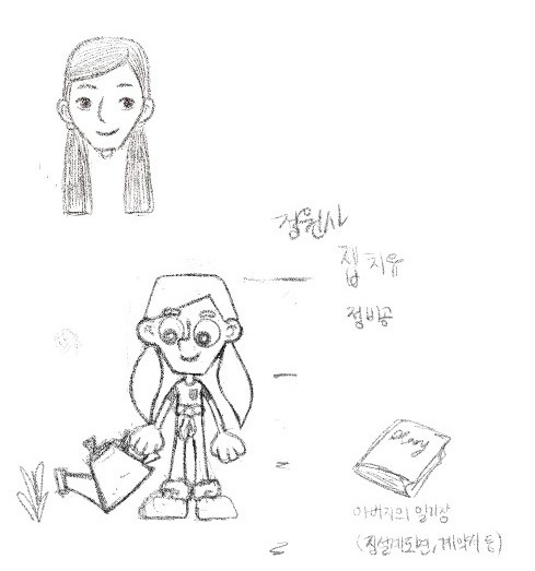 정원사
집 치유
정비공
Diary
아버지의 일기장
(집설계도면, 계약서 등)